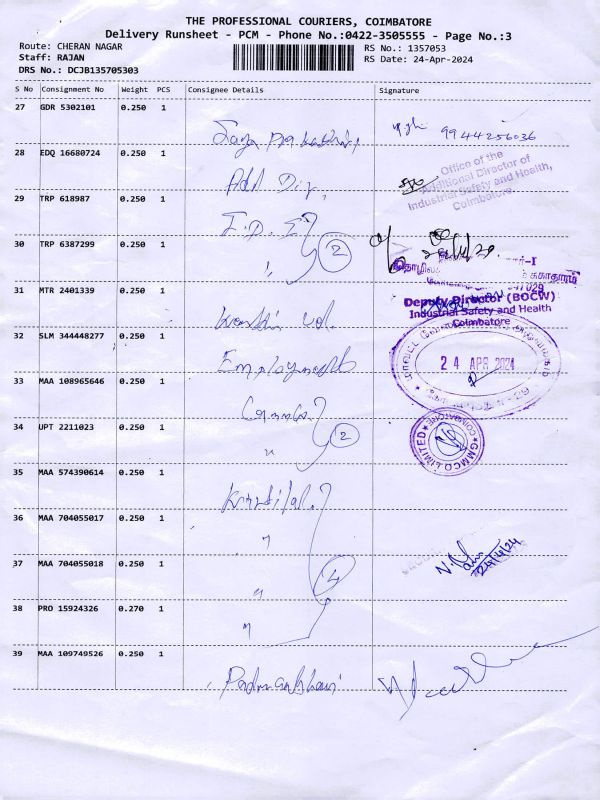 THE PROFESSIONAL COURIERS, COIMBATORE
Delivery Runsheet - PCM - Phone No.:0422-3505555 - Page No.:3
Route: CHERAN NAGAR
RS No.: 1357053
Staff: RAJAN
RS Date: 24-Apr-2024
DRS No.: DCJB135705303
S No Consignment No Weight PCS Consignee Details Signature
27 GDR 5302101 0.250 1
9944256036
28 EDQ 16680724 0.250 1
Office of the
Additional Director of
Industrial Safety and Health,
Coimbatore.
29 TRP 618987 0.250 1
30 TRP 6387299 0.250 1
" 2
31 MTR 2401339 0.250 1
Deputy Director (BOCW)
Industrial Safety and Health
Coimbatore
32 SLM 344448277 0.250 1
Employment
24 APR 2024
33 MAA 108965646 0.250 1
34 UPT 2211023 0.250 1
" 2
GMMCO LIMITED
COIMBATORE
35 MAA 574390614 0.250 1
36 MAA 704055017 0.250 1
"
37 MAA 704055018 0.250 1
" 4
24/4/24
38 PRO 15924326 0.270 1
"
39 MAA 109749526 0.250 1